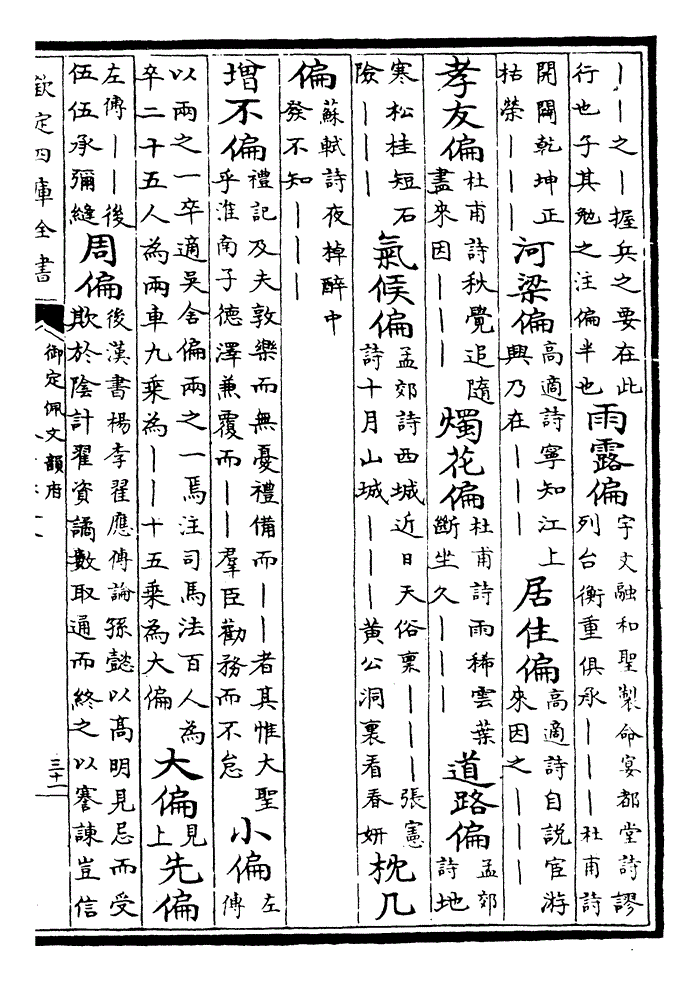 ｜｜之｜握兵之要在此
行也子其勉之注偏半也
雨露偏
宇文融和聖製命宴都堂詩謬
列台衡重俱承｜｜｜杜甫詩
開闢乾坤正
枯榮｜｜｜
河梁偏
高適詩寧知江上
興乃在｜｜｜
居住偏
高適詩自說宦游
來因之｜｜｜
孝友偏
杜甫詩秋覺追隨
盡來因｜｜｜
燭花偏
杜甫詩雨稀雲葉
斷坐久｜｜｜
道路偏
孟郊
詩地
寒松桂短石
險｜｜｜
氣候偏
孟郊詩西城近日天俗稟｜｜｜張憲
詩十月山城｜｜｜黃公洞裏看春妍
枕几
偏
蘇軾詩夜棹醉中
發不知｜｜｜
增不偏
禮記及夫敦樂而無憂禮備而｜｜者其惟大聖
乎淮南子德澤兼覆而｜｜羣臣勸務而不怠
小偏
左
傳
以兩之一卒適吳舍偏兩之一焉注司馬法百人為
卒二十五人為兩車九乘為｜｜十五乘為大偏
大偏
見
上
先偏
左傳｜｜後
伍伍承彌縫
周偏
後漢書楊李翟應傳論孫懿以高明見忌而受
欺於陰計翟資譎數取通而終之以謇諫豈信
欽定四庫全書
御定佩文韻府
三十一